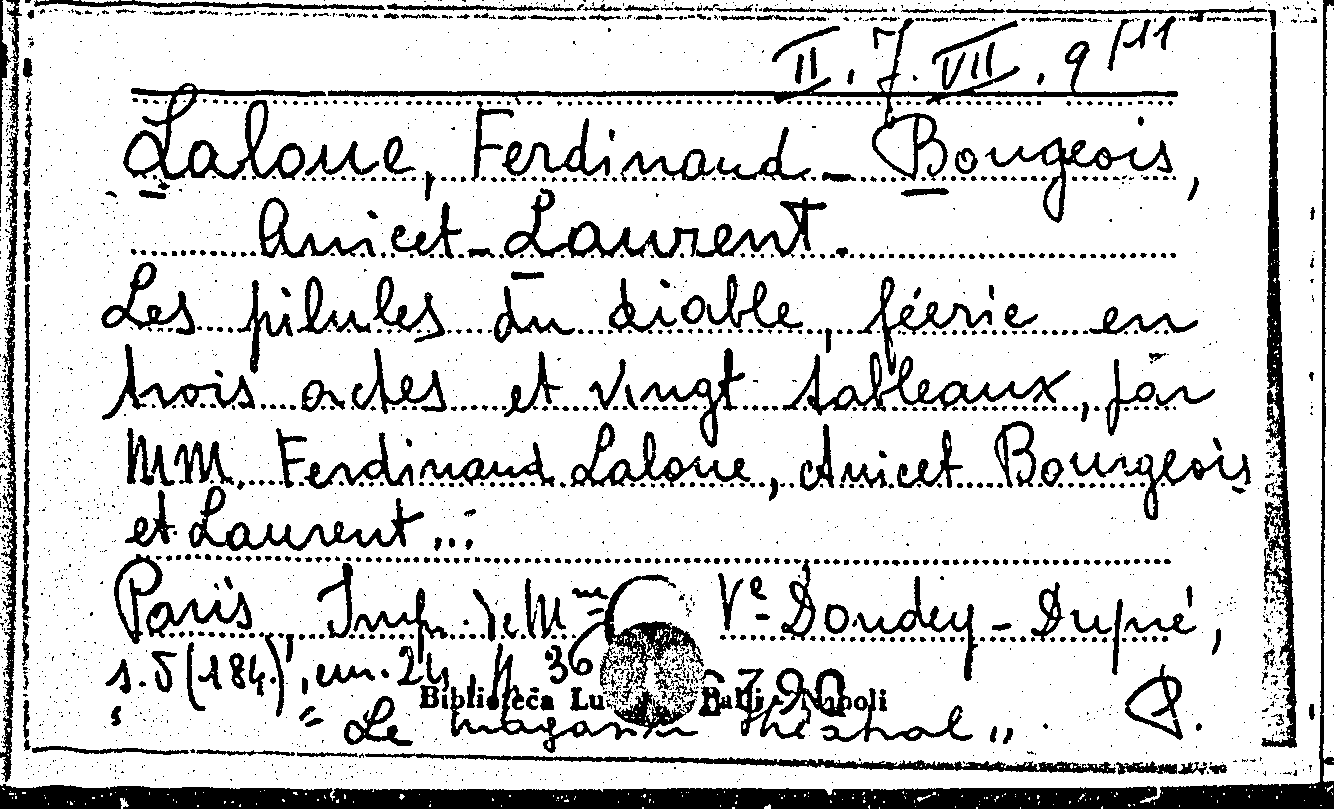 II. 7. VII. 9/11
Laloue, Ferdinand - Bougeois,
Anicet - Laurent.
Les pilules du diable, féerie en
trois actes et vingt tableaux, par
MM. Ferdinand Laloue, Anicet Bourgeois
et Laurent...
Paris Imp. de Mme Ve Dondey-Dupré,
s.d (184.), cm. 24, p. 36
Biblioteca Lu Palli - Napoli
"Le magasin théatral". P.